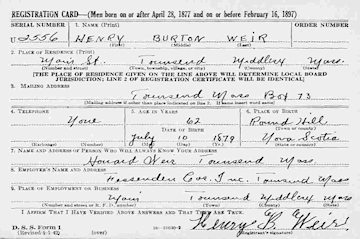 REGISTRATION CARD—(Men born on or after April 28, 1877 and on or before February 16, 1897)
SERIAL NUMBER 1. NAME (Print) ORDER NUMBER
U 2556 HENRY BURTON WEIR
(First) (Middle) (Last)
2. PLACE OF RESIDENCE (Print)
Main St. Townsend Middlesex Mass.
(Number and street) (Town, township, village, or city) (County) (State)
[THE PLACE OF RESIDENCE GIVEN ON THE LINE ABOVE WILL DETERMINE LOCAL BOARD
JURISDICTION; LINE 2 OF REGISTRATION CERTIFICATE WILL BE IDENTICAL]
3. MAILING ADDRESS
Townsend Mass Box 73
[Mailing address if other than place indicated on line 2. If same insert word same]
4. TELEPHONE 5. AGE IN YEARS 6. PLACE OF BIRTH
None 62 Round Hill
DATE OF BIRTH (Town or county)
July 10 1879 Nova Scotia
(Exchange) (Number) (Mo.) (Day) (Yr.) (State or country)
7. NAME AND ADDRESS OF PERSON WHO WILL ALWAYS KNOW YOUR ADDRESS
Howard Weir Townsend Mass.
8. EMPLOYER'S NAME AND ADDRESS
Fessenden Cos. Inc. Townsend Mass
9. PLACE OF EMPLOYMENT OR BUSINESS
Main Townsend Middlesex Mass
(Number and street or R. F. D. number) (Town) (County) (State)
I AFFIRM THAT I HAVE VERIFIED ABOVE ANSWERS AND THAT THEY ARE TRUE.
D. S. S. Form 1 Henry B. Weir
(Revised 4-1-42) (over) (Registrant's signature)